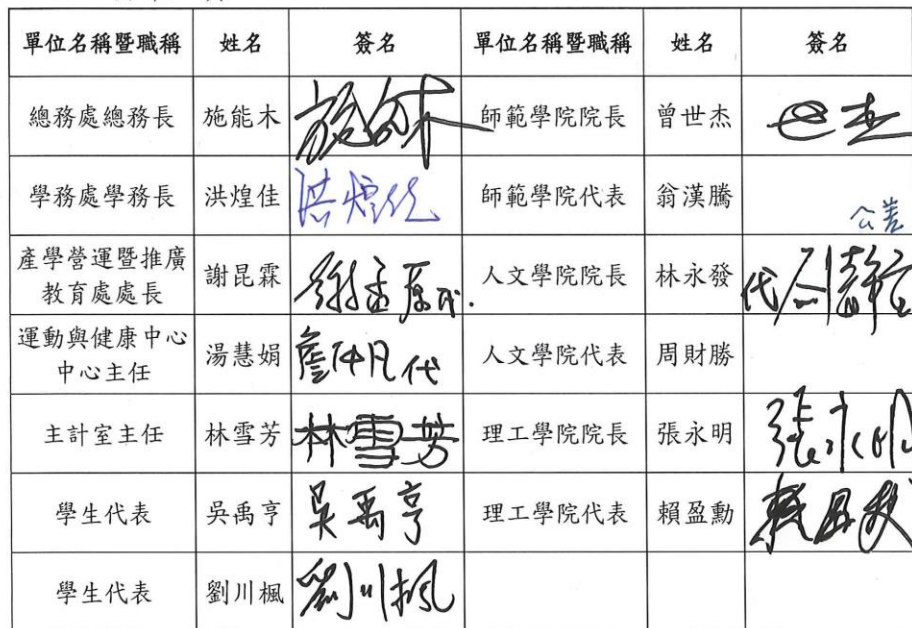 單位名稱暨職稱 姓名 簽名 單位名稱暨職稱 姓名 簽名
總務處總務長 施能木 施能木 師範學院院長 曾世杰 世杰
學務處學務長 洪煌佳 洪煌佳 師範學院代表 翁漢騰 公差
產學營運暨推廣
教育處處長 謝昆霖 代 人文學院院長 林永發 代
運動與健康中心
中心主任 湯慧娟 詹仲凡代 人文學院代表 周財勝
主計室主任 林雪芳 林雪芳 理工學院院長 張永明 張永明
學生代表 吳禹亨 吳禹亨 理工學院代表 賴盈勳
學生代表 劉川楓 劉川楓